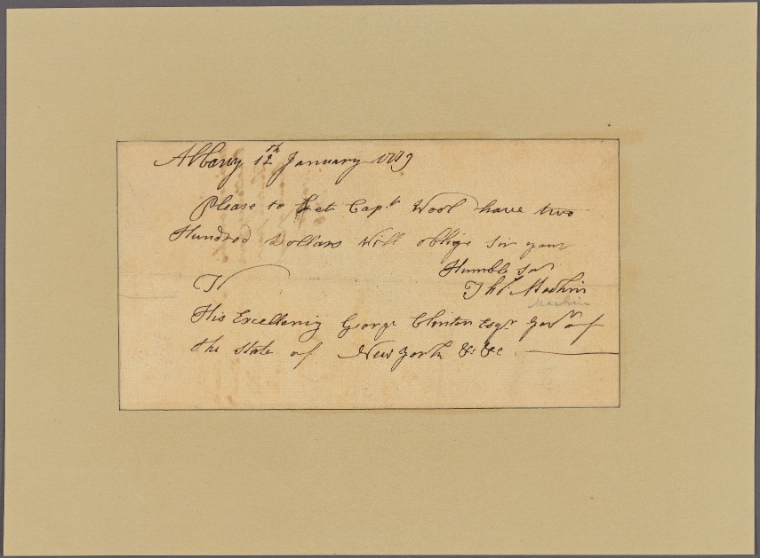 Albany 12th January 1779
Please to Let Capt Wool have two
Hundred Dollars Will oblige Sir your
Humble Sr
Thos. Machin
Machin
To
His Excellency George Clinton Esqr. Govr of
the State of New York &c &c